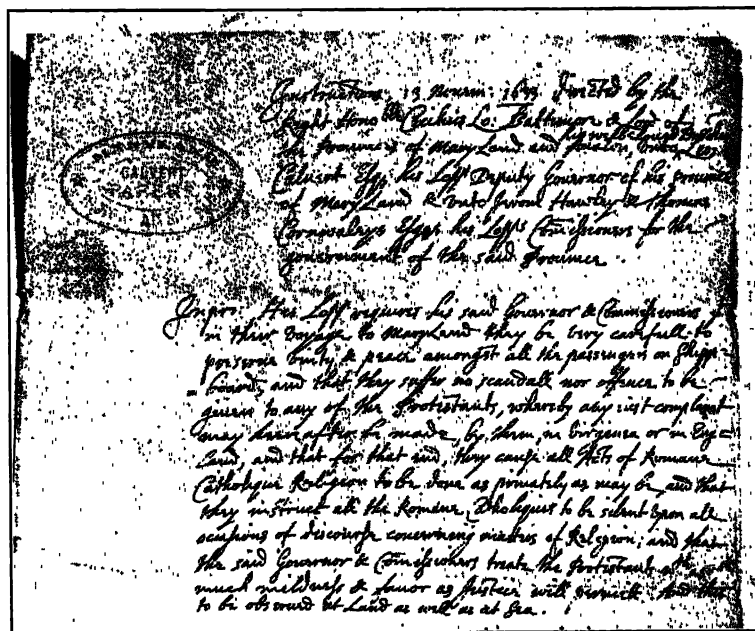 Instructions 13 Novem: 1633 directed by the
Right Hono:ble Cecilius Lo: Baltimore & Lord of
the Provinces of Mary Land and Avalon unto his well beloved Brother Leo:
Calvert Esqr his Lopps Deputy Governor of his province
of Mary Land & unto Jerom Hawley & Thomas
Cornwaleys Esqrs his Lopps Comissioners for the
government of the said Province.
CALVERT
PAPERS
Impri: His Lopp requires his said Governor & Comissioners yt
in their voyage to Mary Land they be very carefull to
preserve unity & peace amongst all the passengers on Shipp-
board, and that they suffer no scandall nor offence to be
given to any of the Protestants, whereby any just complaint
may heereafter be made, by them, in Virginea or in Eng-
land, and that for that end, they cause all Acts of Romane
Catholique Religion to be done as privately as may be, and that
they instruct all the Romane Catholiques to be silent upon all
occasions of discourse concerning matters of Religion; and that
the said Governor & Comissioners treate the Protestants wth as
much mildness & favor as Justice will permitt. And this
to be observed at Land as well as at Sea.